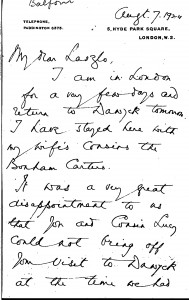 Balfour
Augt. 7. 1924
TELEPHONE,
PADDINGTON 2275.
5, HYDE PARK SQUARE,
LONDON, W.2.
My dear Laszlo,
I am in London
for a very few days and
return to Dawyck tomorrow.
I have stayed here with
my wife's cousins the
Bonham Carters.
It was a very great
disappointment to us
that you and Cousin Lucy
could not bring off
your visit to Dawyck
at the time we had